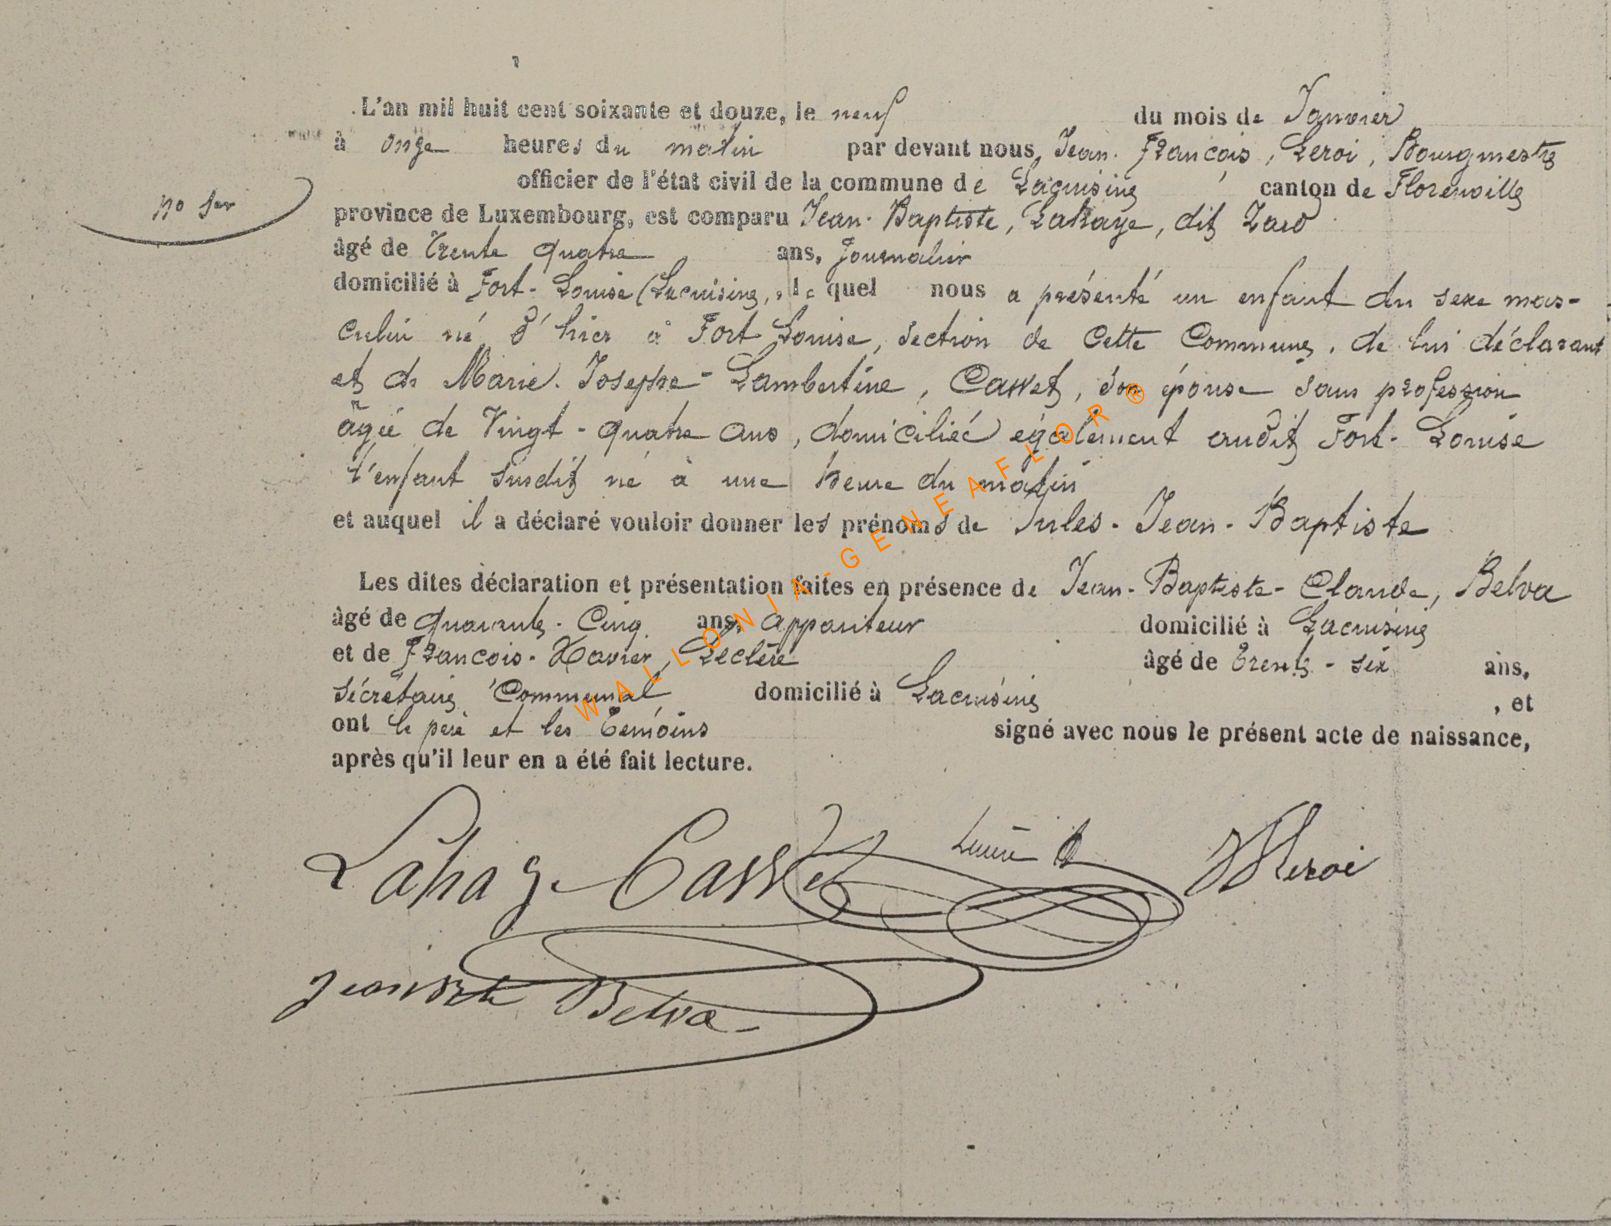 L'an mil huit cent soixante et douze, le neuf du mois de Janvier
à onze heures du matin par devant nous, Jean-François, Leroi, Bourgmestre
officier de l'état civil de la commune de Lacuisine, canton de Florenville
No 1er
province de Luxembourg, est comparu Jean-Baptiste, Lahaye, dit
âgé de trente quatre ans, Journalier
domicilié à Fort-Louise (Lacuisine, le quel nous a présenté un enfant du sexe mas-
culin né d'hier à Fort Louise, section de cette Commune, de lui déclarant
et de Marie-Josephe-Lambertine, Casset, son épouse sans profession
âgée de Vingt-quatre ans, domiciliée également audit Fort-Louise
l'enfant susdit né à une heure du matin
et auquel il a déclaré vouloir donner les prénoms de Jules-Jean-Baptiste
Les dites déclaration et présentation faites en présence de Jean-Baptiste-Claude, Belva
âgé de quarante-Cinq ans, appariteur domicilié à Lacuisine
et de François-Xavier, Leclère âgé de trente-six ans,
sécrétaire Communal domicilié à Lacuisine, et
ont le père et les témoins signé avec nous le présent acte de naissance,
après qu'il leur en a été fait lecture.
Lahaye-Casset Leroi
Jean Bte Belva
WALLONIA-GENEAFLOR®